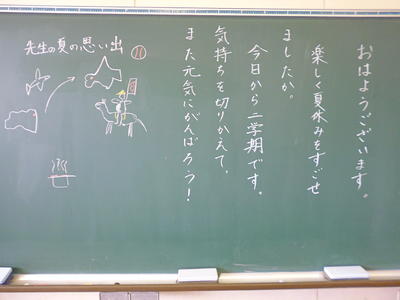 おはようございます。
楽しく夏休みをすごせ
ましたか。
今日から二学期です。
気持ちを切りかえて、
また元気にがんばろう！
先生の夏の思い出